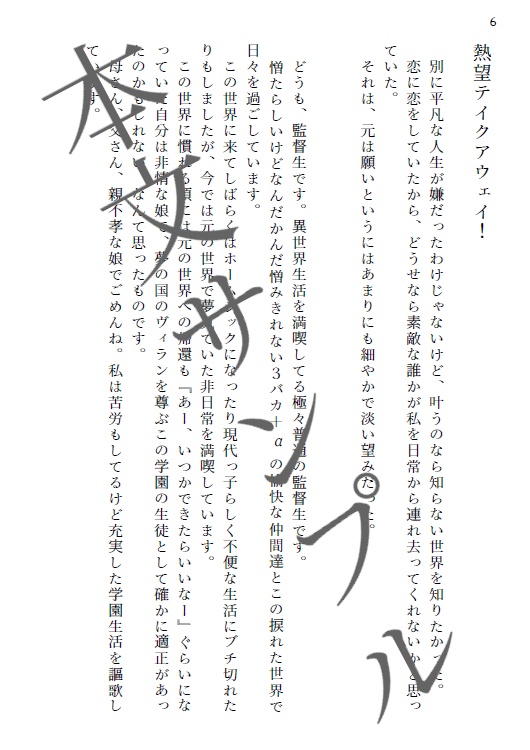 6
熱望テイクアウェイ!
別に平凡な人生が嫌だったわけじゃないけど、叶うのなら知らない世界を知りたかった。
恋に恋をしていたから、どうせなら素敵な誰かが私を日常から連れ去ってくれないかと思っ
ていた。
それは、元は願いというにはあまりにも細やかで淡い望みだった。
どうも、監督生です。異世界生活を満喫してる極々普通の監督生です。
憎たらしいけどなんだかんだ憎みきれない3バカ+αの愉快な仲間達とこの捩れた世界で
日々を過ごしています。
この世界に来てしばらくはホームシックになったり現代っ子らしく不便な生活にブチ切れた
りもしましたが、今では元の世界で夢見ていた非日常を満喫しています。
この世界に慣れる頃には元の世界への帰還も『あー、いつかできたらいいなー』ぐらいにな
っていた自分は非情な娘で、夢の国のヴィランを尊ぶこの学園の生徒として確かに適正があっ
たのかもしれない、なんて思ったものです。
母さん、父さん、親不孝な娘でごめんね。私は苦労もしてるけど充実した学園生活を謳歌し
ています。
本文サンプル